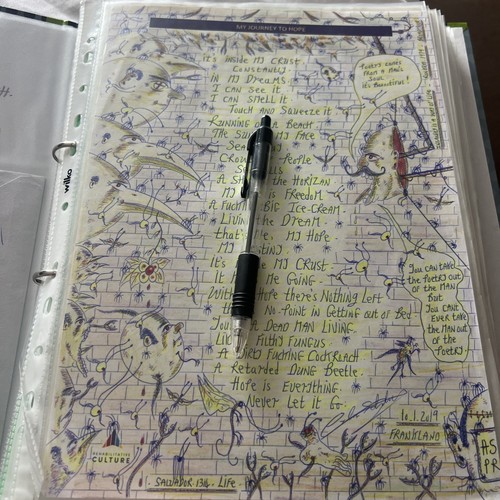 MY JOURNEY TO HOPE
it's inside MJ CRUST
CONSTANTLY
IN MJ DREAMS
I CAN SEE it
I CAN SMELL it
TOUCH AND SQUEEZE it
RUNNING A BEACH
THE SUN MJ FACE
SEA
CROW PEOPLE
A S THE HORIZAN
MJ IS FREEDOM
A FUCKIN BIG ICE-CREAM
LIVIN THE DREAM
that's MJ HOPE
MJ
It's MJ CRUST
It ME GOING
With HOPE there's Nothing Left
No-Point in Getting out of Bed
YOU A DEAD MAN LIVING
LIKE FILTHY FUNGUS
A FUCKING COCKROACH
A RETARDED DUNG BEETLE
HOPE is EVERYTHING
NEVER LET it GO
POETRY COMES
FROM A MANS
SOUL
it's BEAUTIFUL!
YOU CAN TAKE
the POETRY out
OF the MAN
BUT
YOU CAN'T
EVER TAKE
the MAN out
OF the
POETRY
10.1.2019
FRANKLAND
REHABILITATIVE
CULTURE
SALVADOR 1314 - LIFE
wilko